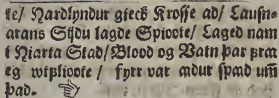 ke/ Hardlyndur gieck Krosse ad/ Lausn-
arans Sijdu lagde Spioote/ Laged nam
i Niarta Stad/ Blood og Vatn þar strax
eg wtplioote/ fyrr var adur spaad um̃
það.